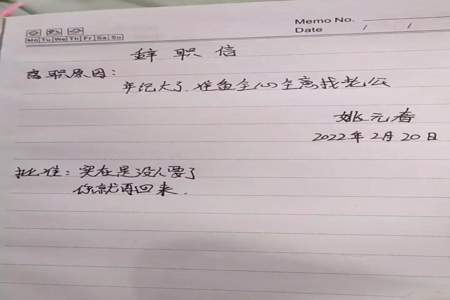 Memo No.
Date / /
Mo Tu We Th Fr Sa Su
辞职信
离职原因：
年纪大了,准备全心全意找老公
姚元春
2022年2月20日
批准：实在是没人要了
你就再回来.